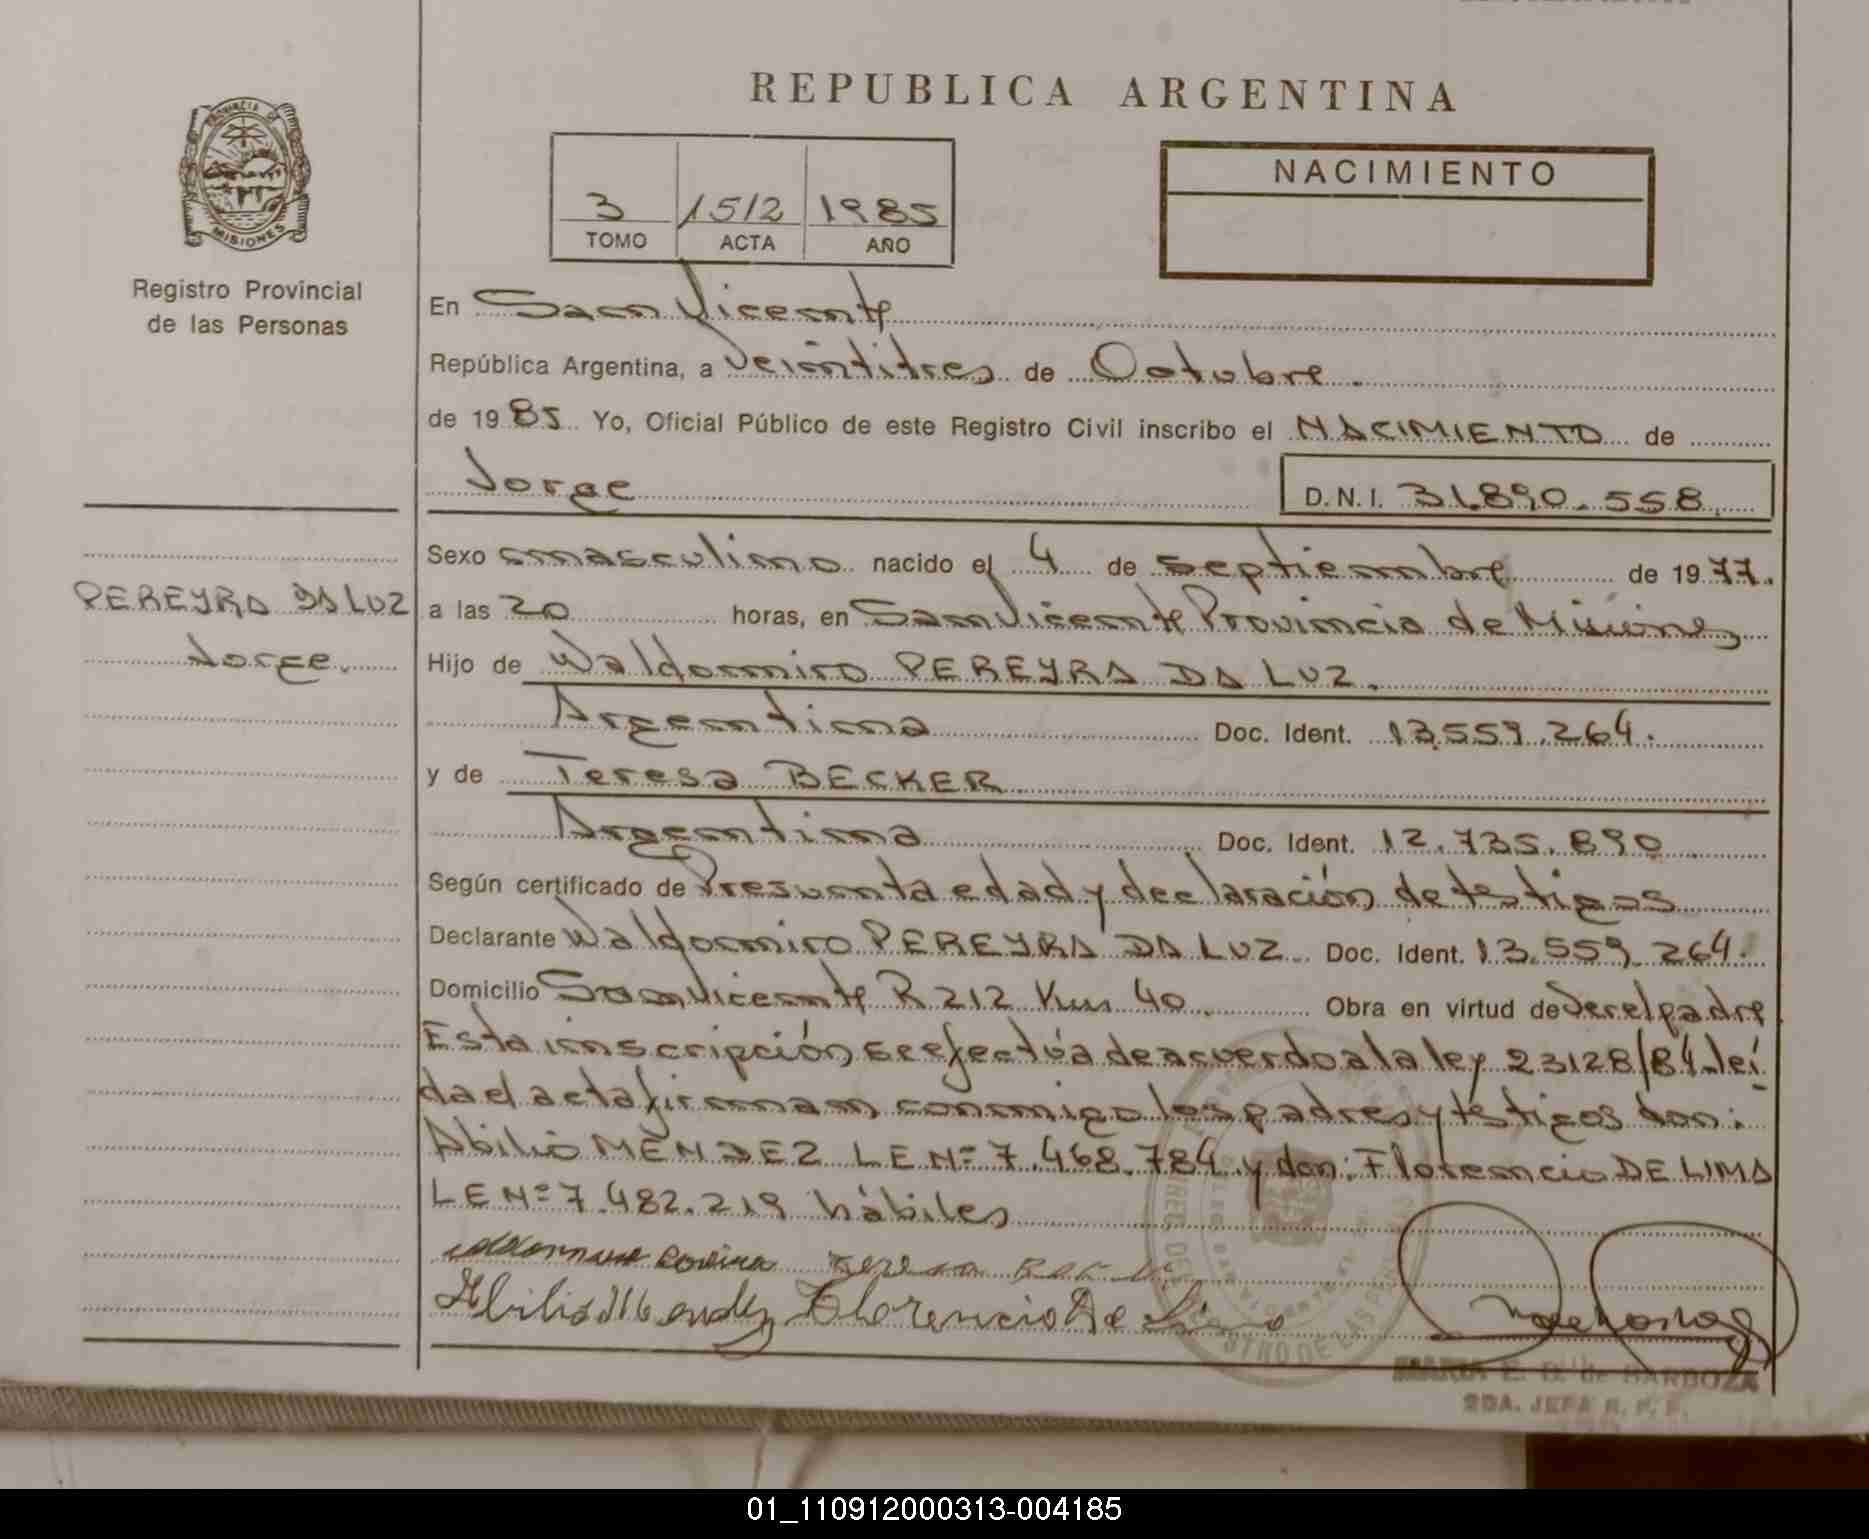 REPUBLICA ARGENTINA
PROVINCIA DE
MISIONES
Registro Provincial
de las Personas
3 1512 1985
TOMO ACTA AÑO
NACIMIENTO
En San Vicente
República Argentina, a Veintitres de Octubre
de 1985 Yo, Oficial Público de este Registro Civil inscribo el NACIMIENTO de
Jorge D.N.I. 31.890.558
PEREYRA DA LUZ
Jorge.
Sexo masculino nacido el 4 de septiembre de 1977.
a las 20 horas, en San Vicente Provincia de Misiones
Hijo de Waldomiro PEREYRA DA LUZ.
Argentina Doc. Ident. 13.559.264.
y de Teresa BECKER
Argentina Doc. Ident. 12.735.890
Según certificado de Presunta edad y declaración de testigos
Declarante Waldomiro PEREYRA DA LUZ Doc. Ident. 13.559.264.
Domicilio San Vicente R 212 Km 40. Obra en virtud de ser el padre
Esta inscripción se efectúa de acuerdo a la ley 23128/84. leí
da el acta firman conmigo los padres y testigos don:
Abilio MENDEZ LE Nº 7.468.784 y don: Florencio DE LIMA
LE Nº 7.482.219 hábiles
Teresa
Abilio Mendez Florencio De Lima
MARIA E. D. de BARBOZA
2DA. JEFA R. P. P.
01_110912000313-004185